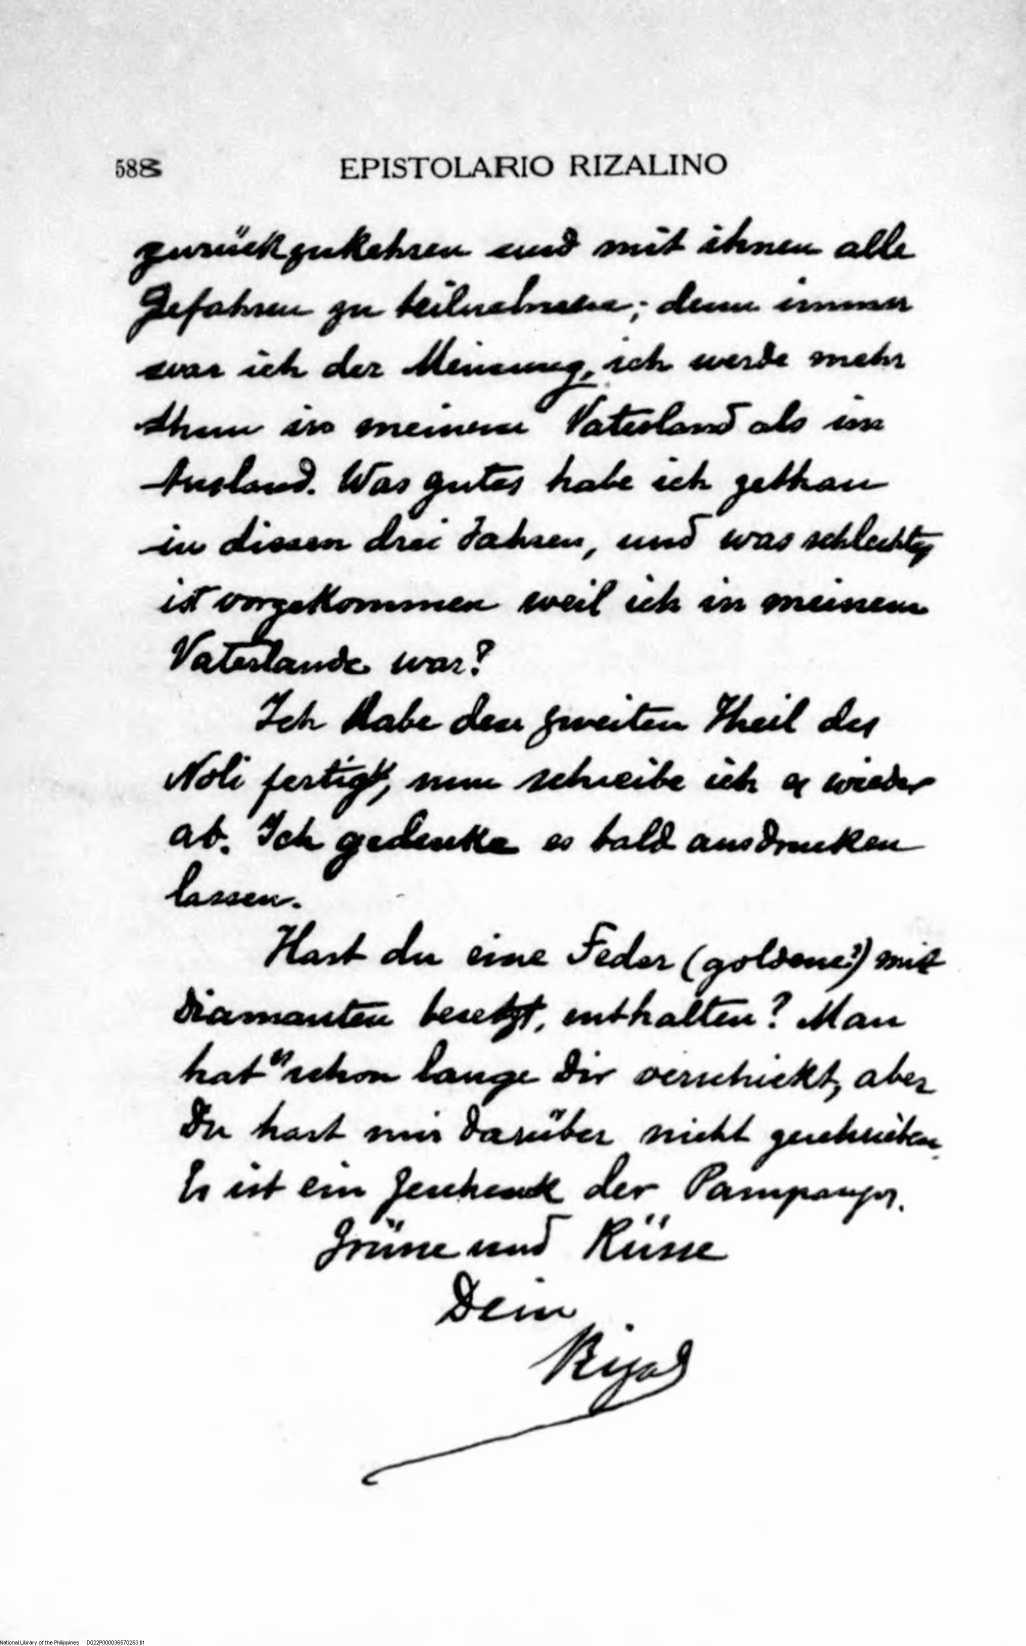 588 EPISTOLARIO RIZALINO
zurückzukehren und mit ihnen alle
Gefahren zu teilnehmen; denn immer
war ich der Meinung, ich werde mehr
thun in meinem Vaterland als im
Ausland. Was gutes habe ich gethan
in diesen drei Jahren, und was schlechtes
ist vorgekommen weil ich in meinem
Vaterlande war?
Ich habe den zweiten Theil des
Noli fertig, nun schreibe ich es wieder
ab. Ich gedenke es bald ausdrucken
lassen.
Hast du eine Feder (goldene?) mit
Diamanten besetzt, enthalten? Man
hat schon lange Dir verschickt, aber
Du hast mir darüber nicht geschrieben.
Es ist ein Geschenk der
Grüsse und Küsse
Dein
Rizal
National Library of the Philippines